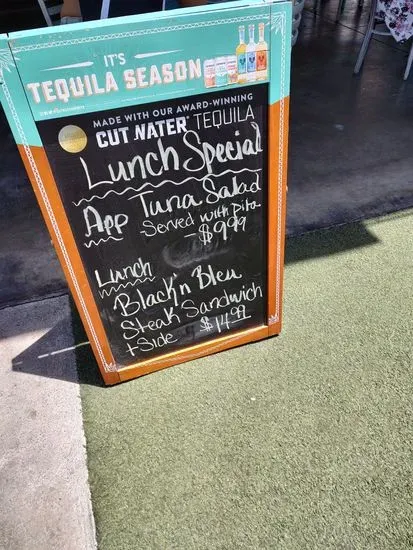 IT'S
TEQUILA SEASON
MADE WITH OUR AWARD-WINNING
CUTWATER TEQUILA
Lunch Special
App Tuna Salad
Served with Pita
$9.99
Lunch
Black 'n Bleu
Steak Sandwich
+ Side $14.99